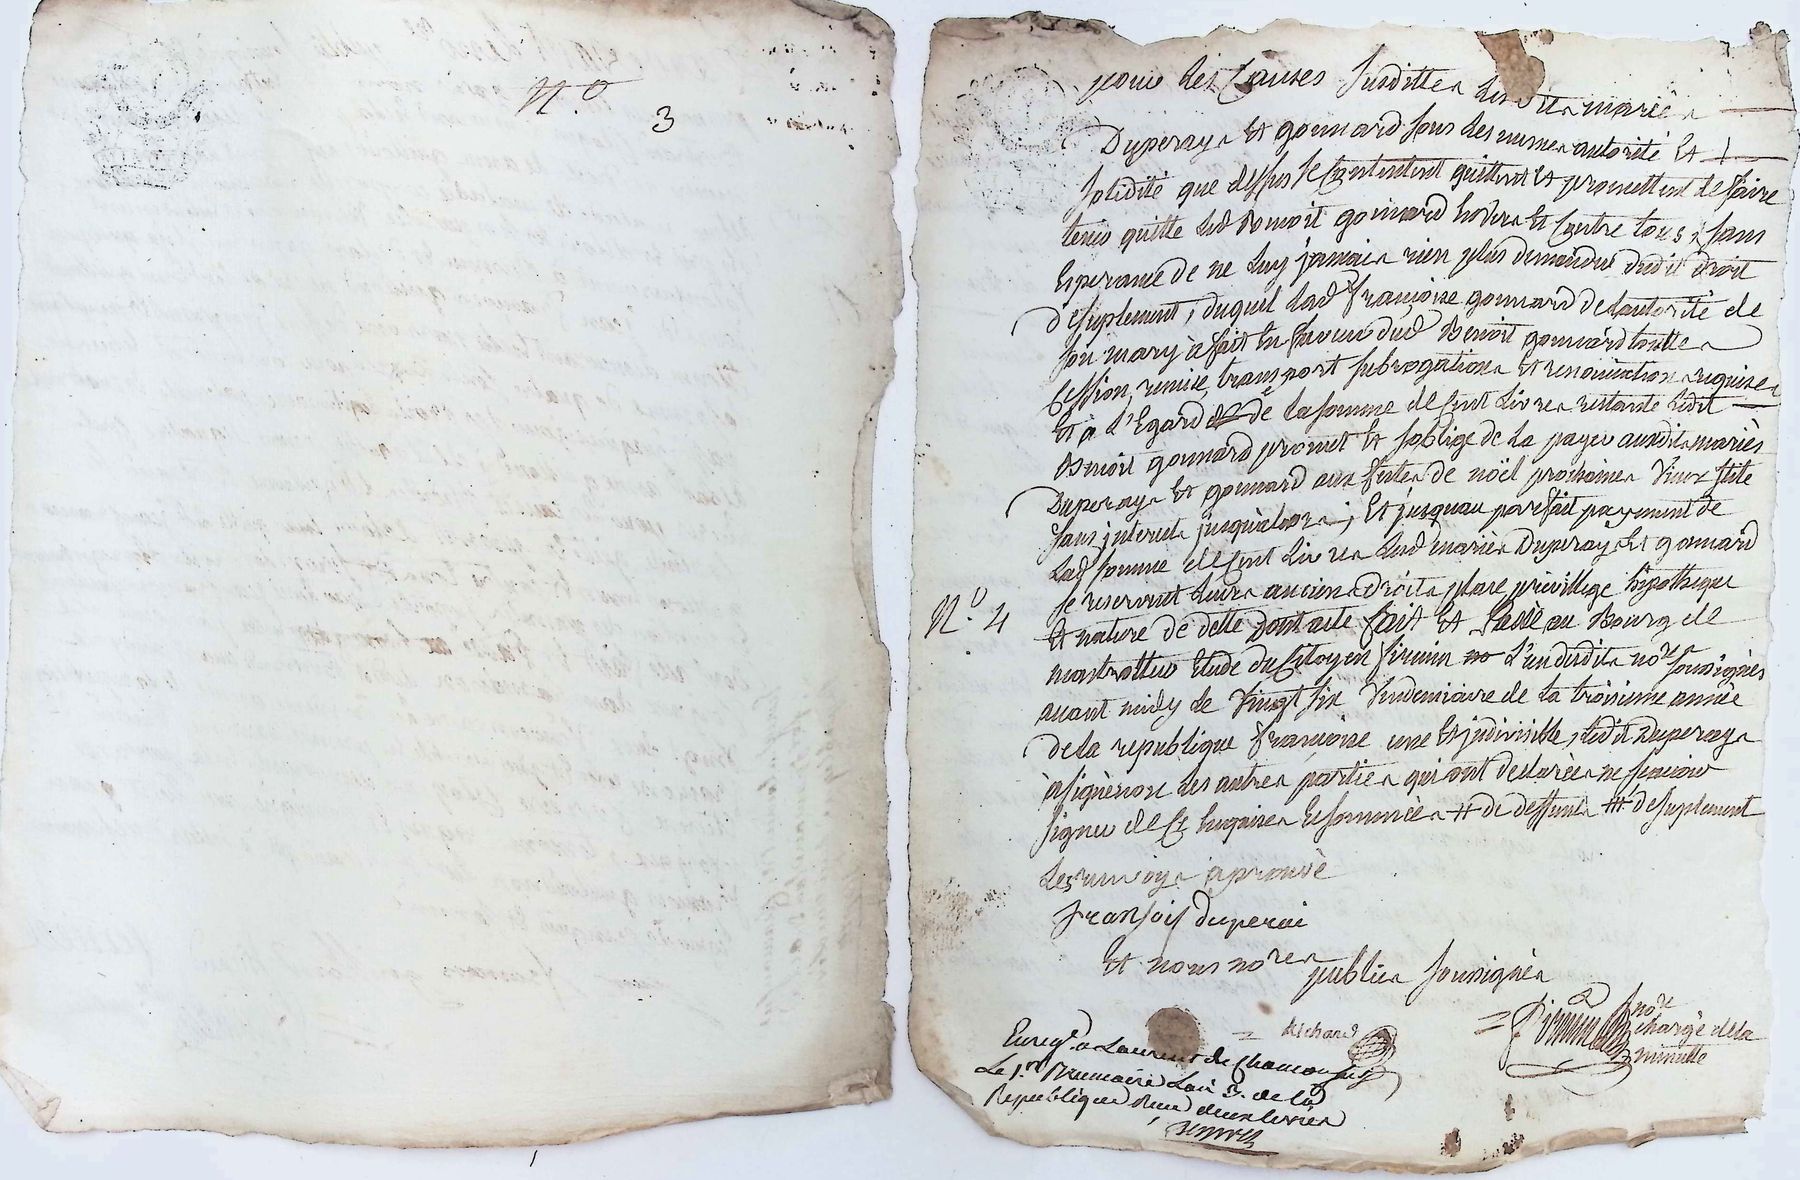 N.º 3
pour les Causes susdittes lesdits mariès
Duperay et gonnard sous les mesmes autorité Et
soliditè que dessus se Contentent quittent et promettent de faire
tenir quitte led Benoit gonnard Envers Et Contre tous, sans
Esperance de ne luy jamais rien plus demander dudit droit
de suplement, duquel lad françoise gonnard de lautorité de
son mary à fait En faveur dud Benoit gonnard toutte
Cession, remise, transport subrogation Et renonciation requise
Et à l'Egard de la somme de Cent livres restante ledit
Benoit gonnard promet Et soblige de la payer auxdits mariès
Duperay et gonnard aux festes de noël prochaines vieux stile
sans interets jusqu'alors; Et jusquau parfait payement de
lad somme de Cent livres lesd mariès Duperay Et gonnard
se reservent leurs anciens droits place privillege hipotheque
N.º 4
Et nature de dette Dont acte fait Et Passé au Bourg de
montrottier Etude du Citoyen firmin no l'un desdits nores sousignès
avant midy le vingt six Vendemiaire de la troisieme annèe
de la republique françoise une Et indivisible, ledit Duperay
à signè non les autres parties qui ont declarèes ne scavoir
signer de Ce Enquises Et sommèes # de deffunt # de suplement
les renvoys aprouvè
fransois duperai
Et nous nores publics sousignès
= Richard
= Firmin nore
chargè de la
minutte
Enregé a Laurent de Chamousset
Le 1.er Brumaire Lan 3. de la
Republique Reçu deux livres